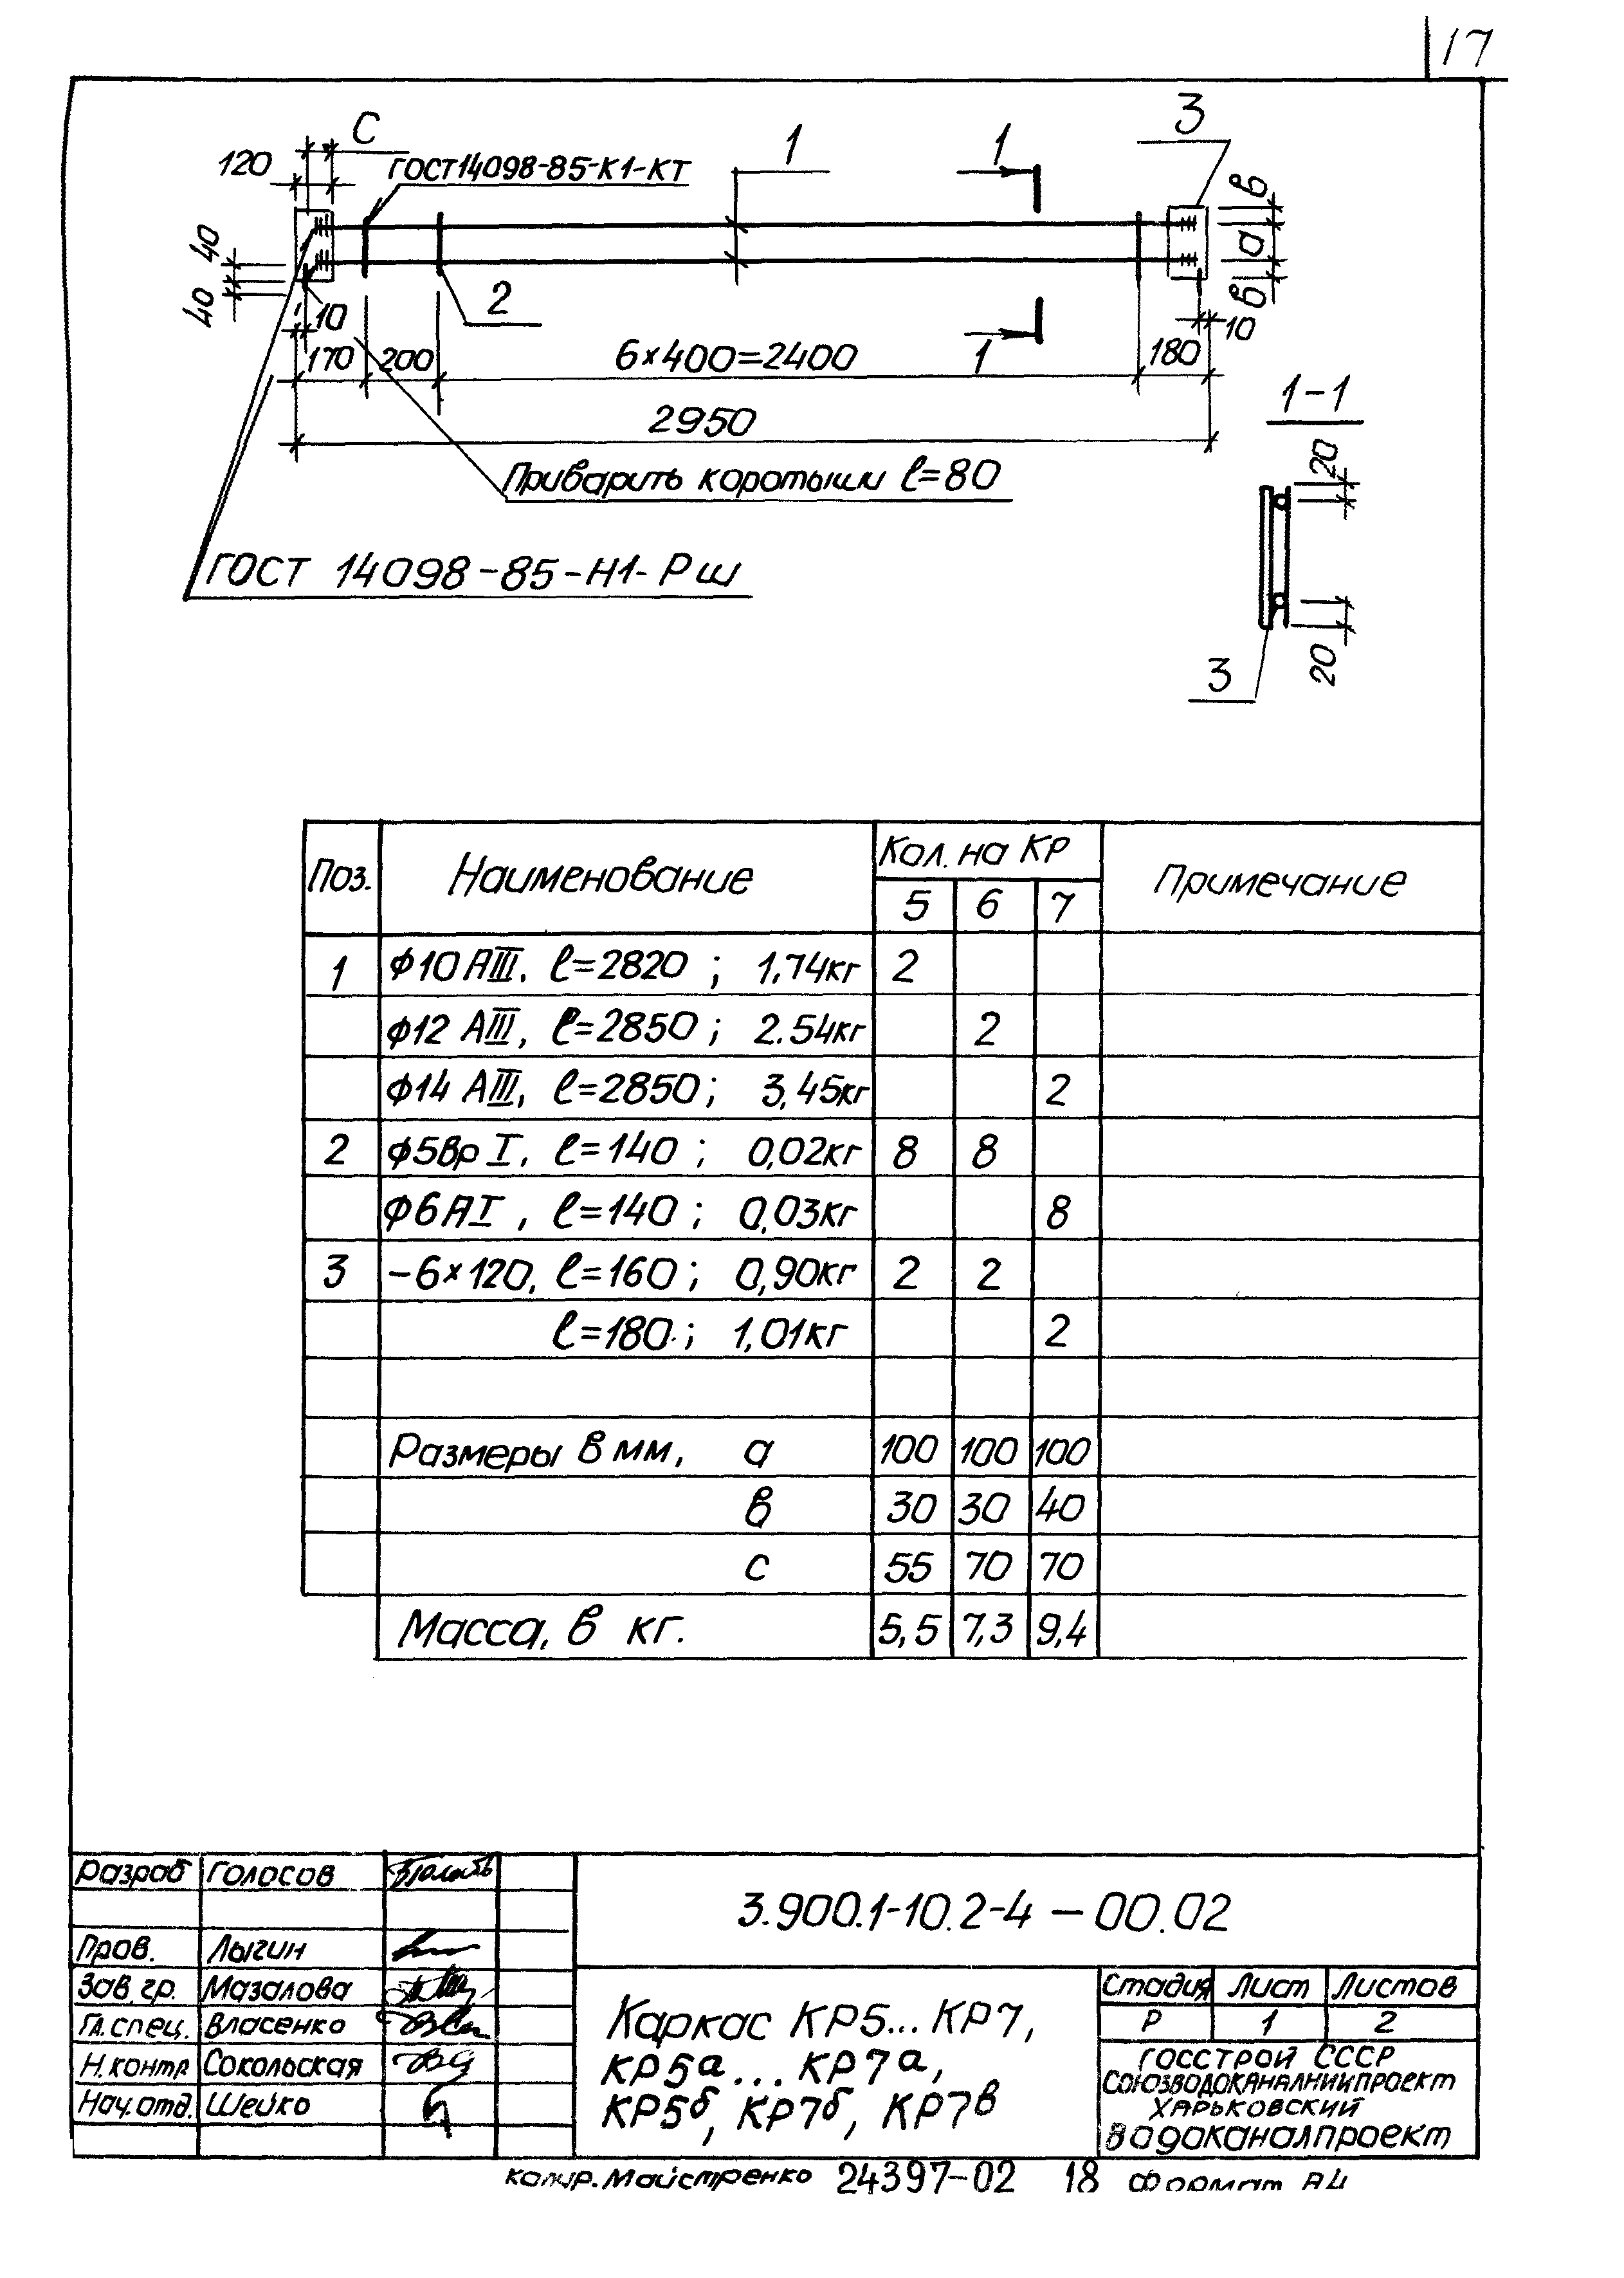 17
С
120
ГОСТ14098-85-К1-КТ
1
1
3
в
а
в
40
40
10
2
10
170
200
6×400=2400
1
180
2950
1-1
Приварить коротыши ℓ=80
20
ГОСТ 14098-85-Н1-Рш
20
3
Поз. Наименование Кол. на КР Примечание
5 6 7
1 ф10 АIII, ℓ=2820 ; 1,74кг 2
ф12 АIII, ℓ=2850 ; 2.54кг 2
ф14 АIII, ℓ=2850 ; 3,45кг 2
2 ф5Вр I, ℓ=140 ; 0,02кг 8 8
ф6АI , ℓ=140 ; 0,03кг 8
3 -6×120, ℓ=160 ; 0,90кг 2 2
ℓ=180 ; 1,01кг 2
Размеры в мм, а 100 100 100
в 30 30 40
с 55 70 70
Масса, в кг. 5,5 7,3 9,4
Разраб Голосов
Пров. Лыгин
Зав. гр. Мазалова
Гл. спец. Власенко
Н. контр Сокольская
Нач. отд. Шейко
3.900.1-10.2-4 – 00.02
Каркас КР5... КР7,
КР5а... КР7а,
КР5б, КР7б, КР7в
Стадия Лист Листов
Р 1 2
ГОССТРОЙ СССР
СОЮЗВОДОКАНАЛНИИПРОЕКТ
ХАРЬКОВСКИЙ
Водоканалпроект
копир. Майстренко 24397-02 18 Формат А4